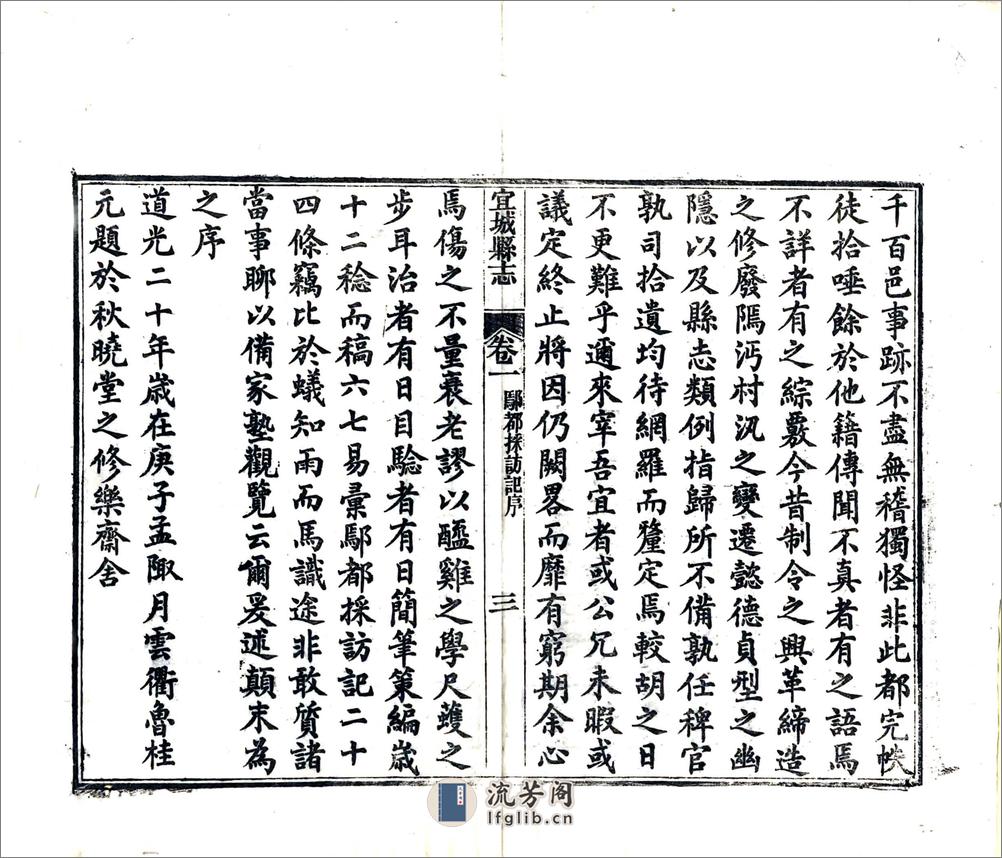 千百邑事跡不盡無稽獨怪非此都完帙
徒拾唾餘於他籍傳聞不真者有之語焉
不詳者有之綜覈今昔制令之興革締造
之修廢隔沔村汛之變遷懿德貞型之幽
隱以及縣志類例指歸所不備孰任稗官
孰司拾遺均待網羅而釐定焉較胡之日
不更難乎邇來宰吾宜者或公冗未暇或
議定終止將因仍闕畧而靡有窮期余心
宜城縣志
卷一
鄢都採訪記序
三
焉傷之不量衰老謬以醯雞之學尺蠖之
步耳治者有日目驗者有日簡筆策編歲
十二稔而稿六七易彙鄢都採訪記二十
四條竊比於蟻知雨而馬識途非敢質諸
當事聊以備家塾觀覽云爾爰述顛末為
之序
道光二十年歲在庚子孟陬月雲衢魯桂
元題於秋曉堂之修樂齋舍
流芳阁
lfglib.cn